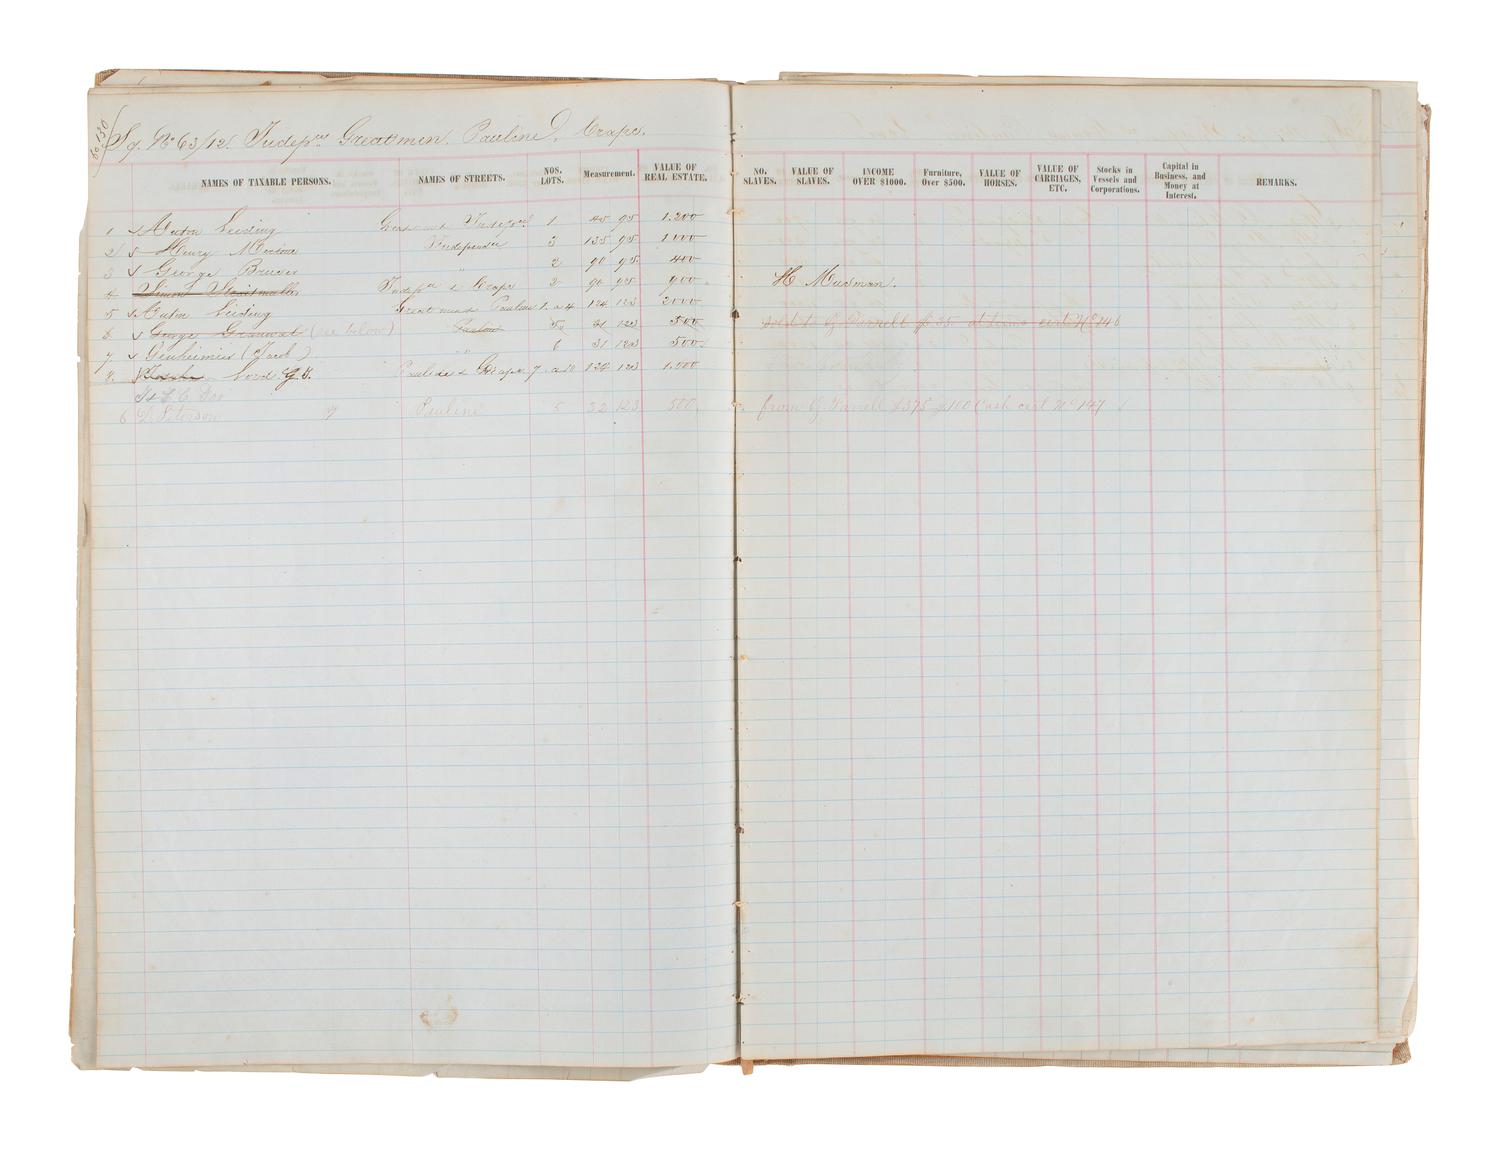 Sq. No 63/12. Indepce Greatmen. Pauline, Craps.
NAMES OF TAXABLE PERSONS. NAMES OF STREETS. NOS. LOTS. Measurement. VALUE OF REAL ESTATE. NO. SLAVES. VALUE OF SLAVES. INCOME OVER $1000. Furniture, Over $500. VALUE OF HORSES. VALUE OF CARRIAGES, ETC. Stocks in Vessels and Corporations. Capital in Business, and Money at Interest. REMARKS.
1 Leeding 1 45 95 1.200
2 Henry Independce 3 135 95 1.000
3 George Bruder " 2 90 95 400
4 Simon Indepce & Craps 2 90 95 900 H Mudman.
5 Leeding Great men & Pauline 1. a 4 124 123 2000
6 George (see below) Pauline 5 31 123 500 sold to G Farrell cert No 146
7 Genheimier (Jacob) " 6 31 123 500
8. Lord. G. F. Pauline & Craps 7 a 10 124 123 1.000
6 D. Peterson 7 Pauline 5 32 123 500. from G Farrell $375 $100 Cash cert No 147